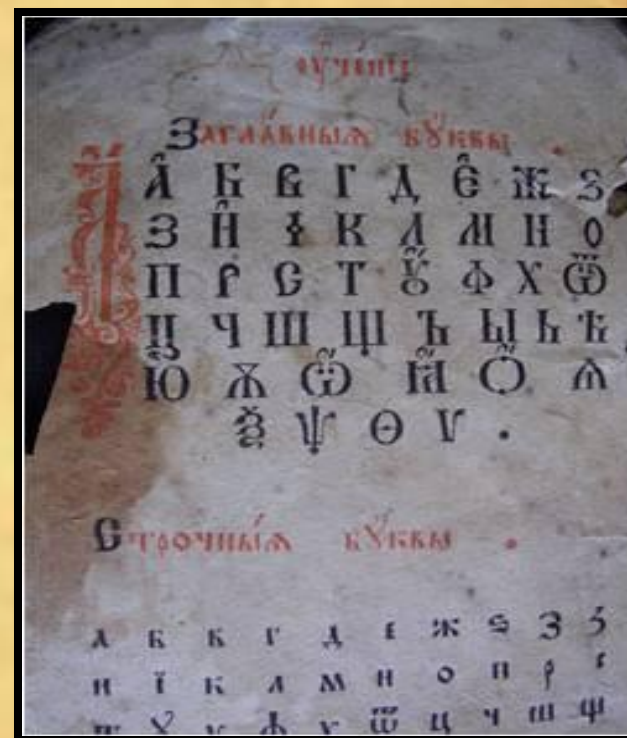 оу҆че́нїе
Загла́вныѧ бꙋ́квы .
А҆ Б В Г Д Е҆ Ж Ѕ
З И҆ І К Л М Н О
П Р С Т Ꙋ҆ Ф Х Ѿ
Ц Ч Ш Щ Ъ Ы Ь Ѣ
Ю҆ Ѫ Ѽ Ꙗ҆ Ѻ҆ Ѧ
Ѯ Ѱ Ѳ Ѵ .
Строчны́ѧ бꙋ́квы .
а б в г д є ж ѕ з
и ї к л м н о п р с
ѿ ц ч ш щ